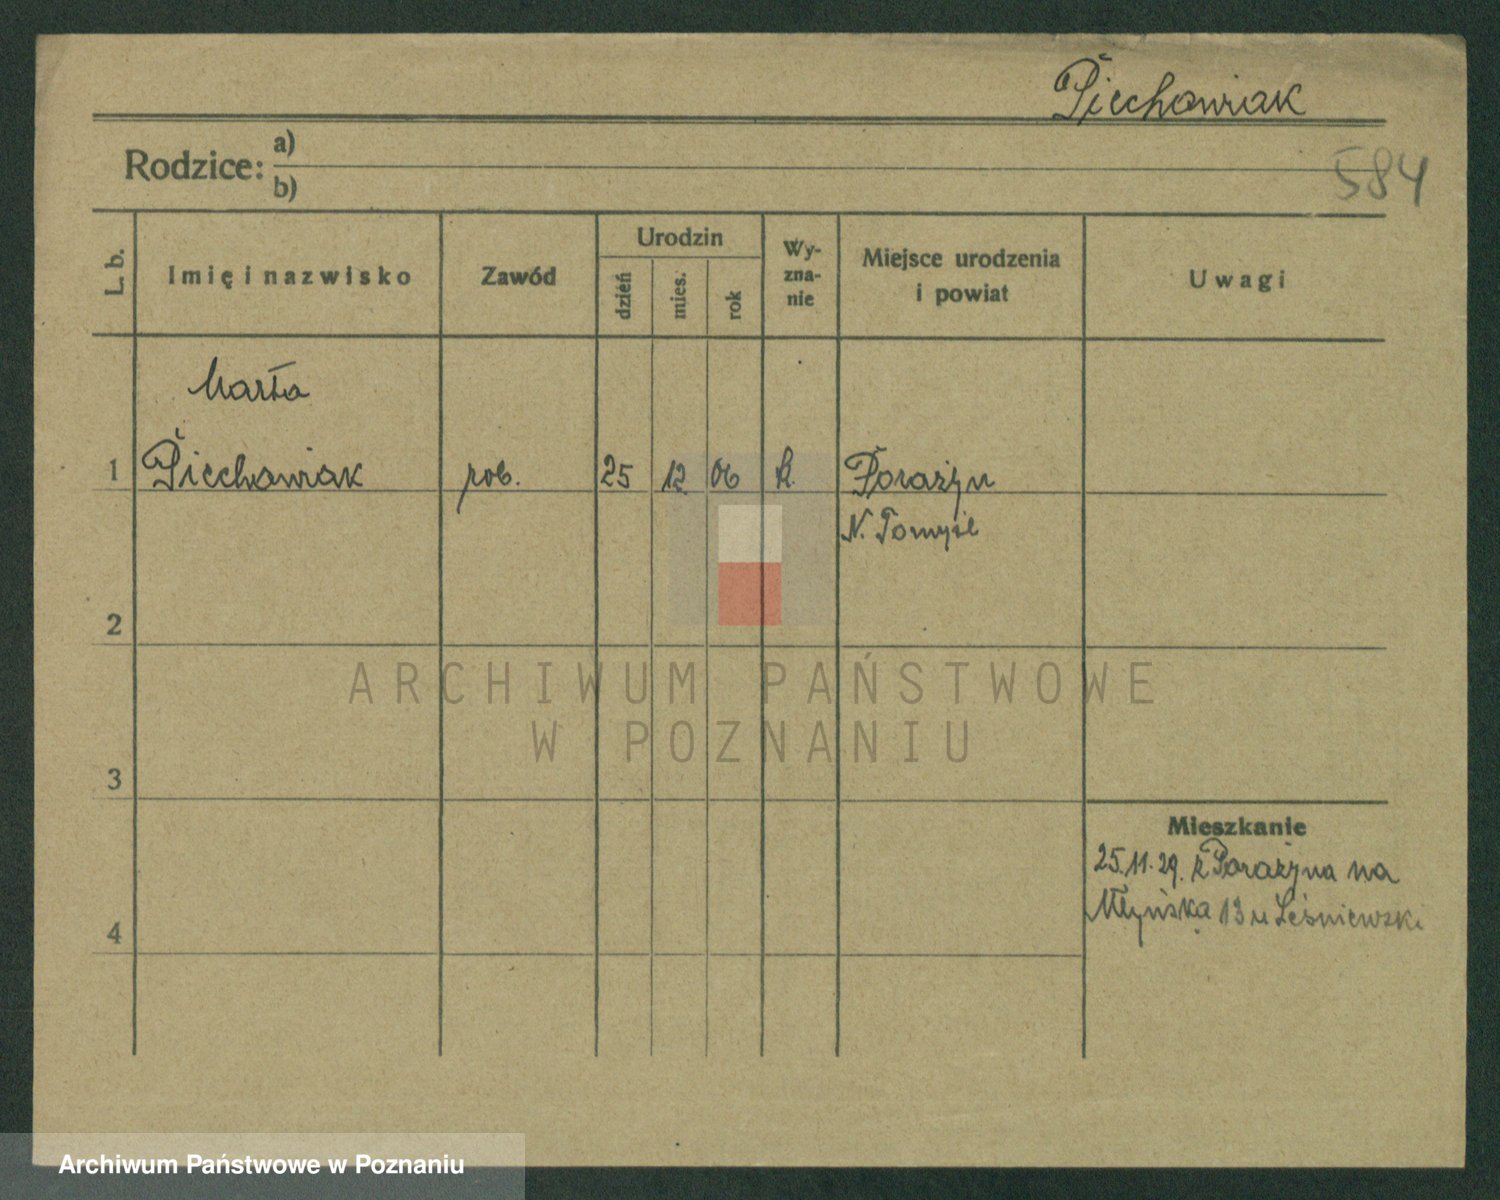 Piechowiak
Rodzice: a)
b)
584
L. b.
Imię i nazwisko
Zawód
Urodzin
dzień
mies.
rok
Wy-
zna-
nie
Miejsce urodzenia
i powiat
Uwagi
Marta
1 Piechowiak rob. 25 12 06 k. Porażyn
N. Tomyśl
2
3
4
Mieszkanie
25.11.29. z Porażyna na
Młyńską 13 u Leśniewski
ARCHIWUM PAŃSTWOWE
W POZNANIU
Archiwum Państwowe w Poznaniu